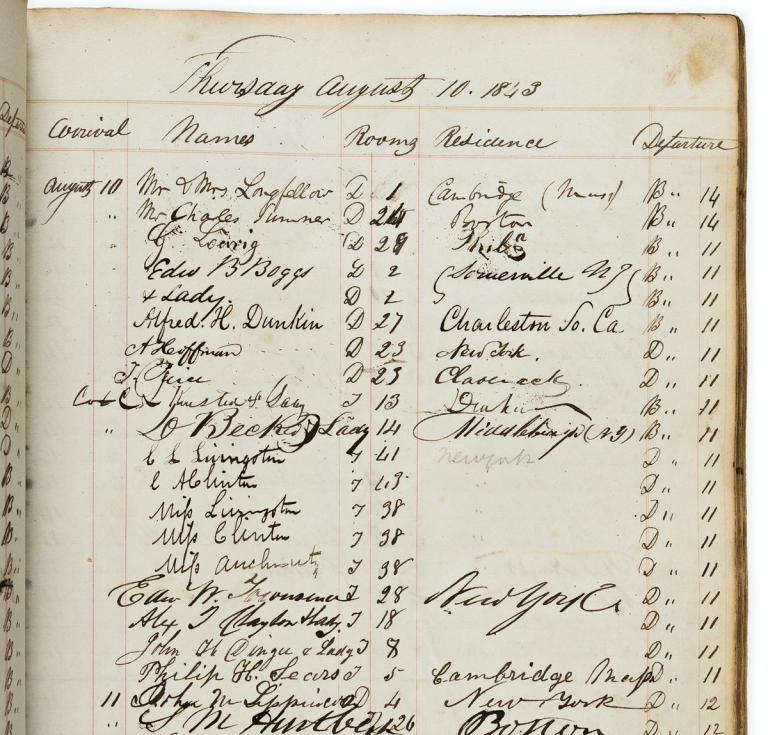 Thursday August 10. 1843
Arrival Names Rooms Residence Departure
August 10 Mr & Mrs Longfellow D 1 Cambridge (Mass) B " 14
" Mr Charles Sumner D 24 Boston B " 14
" G. D 29 B " 11
Edw B Boggs D 2 Somerville NJ B " 11
& Lady. D 2 B " 11
Alfred. H. Dunkin D 27 Charleston So. Ca B " 11
A Hoffman D 23 New York. D " 11
T. Price D 23 Claverack D " 11
& Lady T 13 B " 11
" D Becker & Lady 14 Middleburgh (NY) B " 11
C L Livingston T 41 Newyork D " 11
C A Clinton T 43 " D " 11
Miss Livingston T 38 D " 11
Miss Clinton T 38 D " 11
Miss Auchmuty T 38 D " 11
Edw W. T 28 New York D " 11
Alex T Clayton & Lady T 18 D " 11
John H & Lady T 8 D " 11
Philip H. Sears T 5 Cambridge Mass D " 11
11 John M D 4 New York D " 12
" S M Hurlbert D 26 Boston D " 12